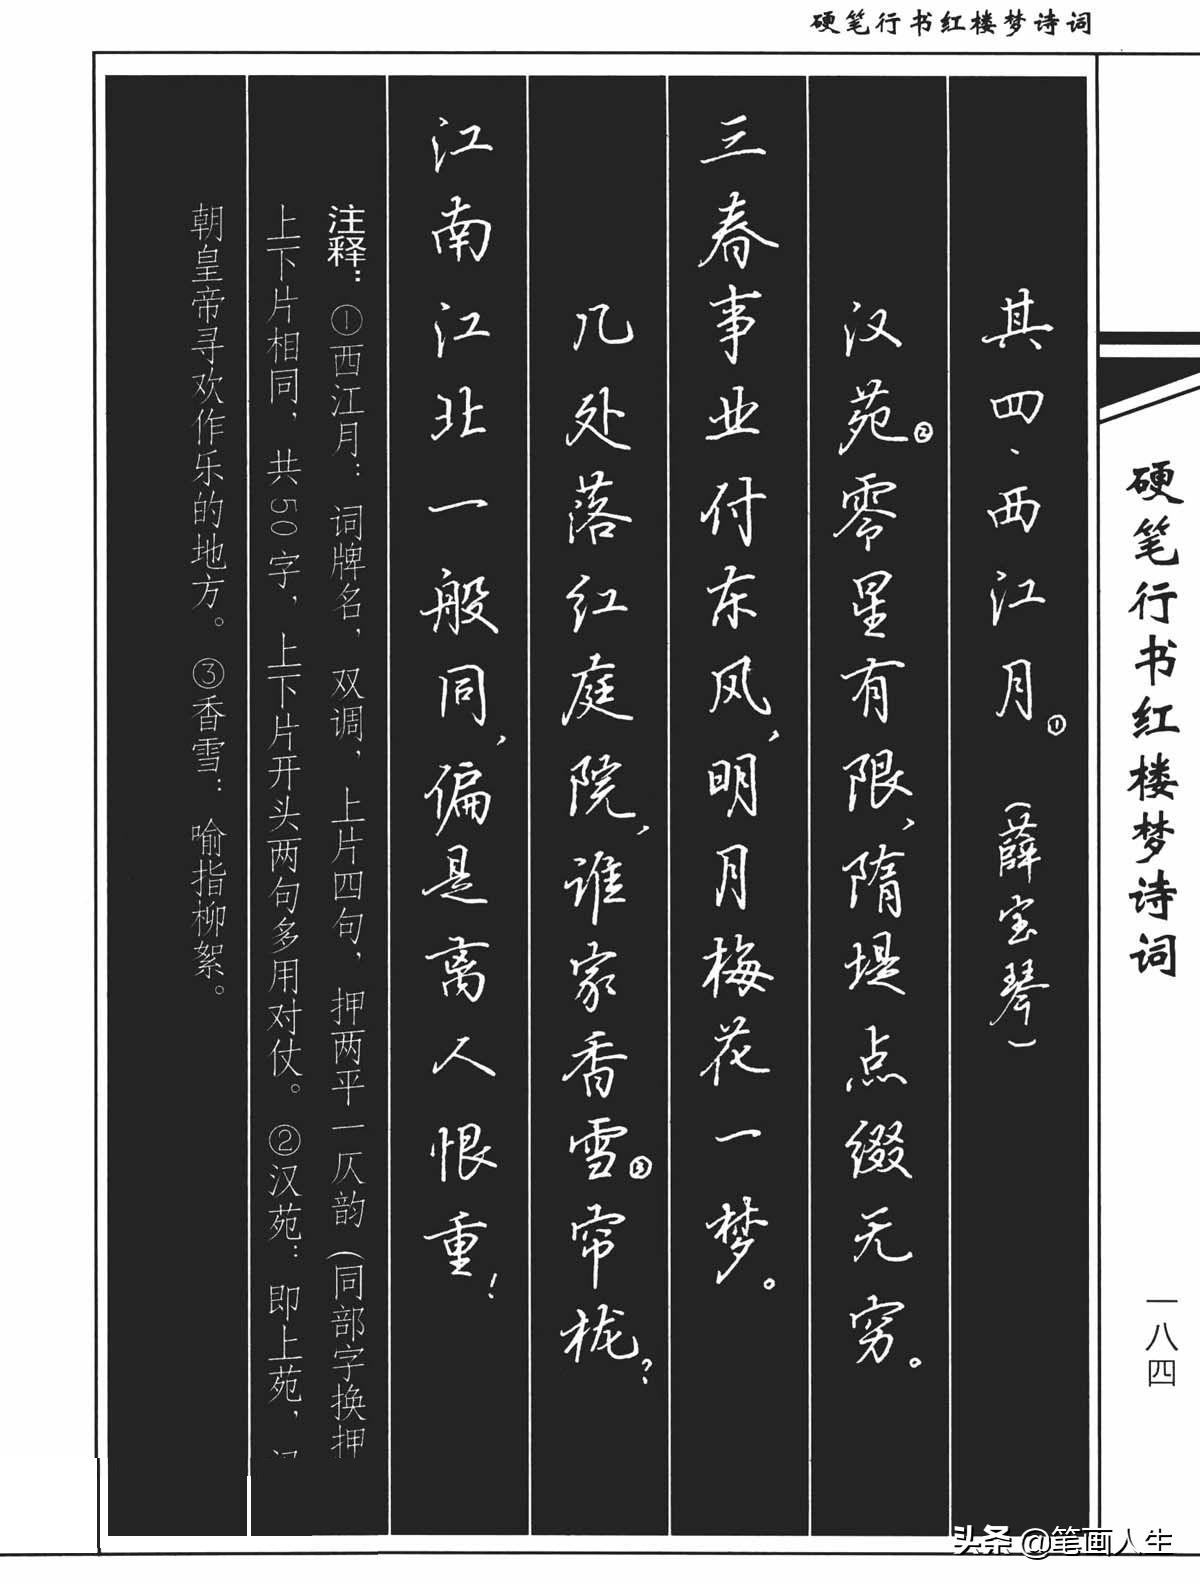 硬笔行书红楼梦诗词
硬笔行书红楼梦诗词
一八四
其四、西江月①(薛宝琴)
汉苑②零星有限,隋堤点缀无穷。
三春事业付东风,明月梅花一梦。
几处落红庭院,谁家香雪③帘栊?
江南江北一般同,偏是离人恨重!
注释:①西江月:词牌名,双调,上片四句,押两平一仄韵(同部字换押
上下片相同,共50字,上下片开头两句多用对仗。②汉苑:即上苑,
朝皇帝寻欢作乐的地方。③香雪:喻指柳絮。
头条 @笔画人生